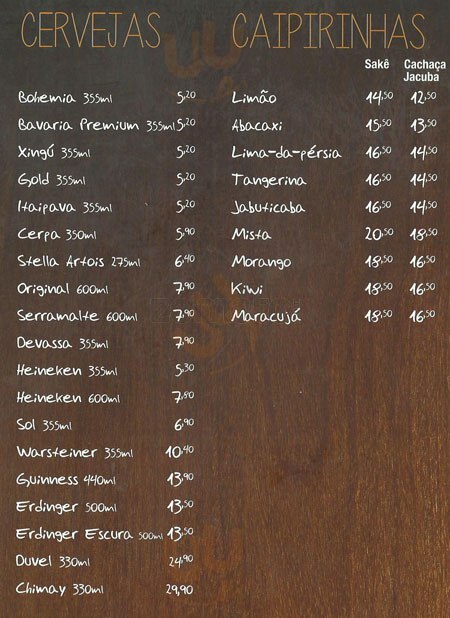 CERVEJAS
Bohemia 355ml 5,20
Bavaria Premium 355ml 5,20
Xingú 355ml 5,20
Gold 355ml 5,20
Itaipava 355ml 5,20
Cerpa 350ml 5,90
Stella Artois 275ml 6,40
Original 600ml 7,90
Serramalte 600ml 7,90
Devassa 355ml 7,90
Heineken 355ml 5,30
Heineken 600ml 7,80
Sol 355ml 6,90
Warsteiner 355ml 10,40
Guinness 440ml 13,90
Erdinger 500ml 13,50
Erdinger Escura 500ml 13,50
Duvel 330ml 24,90
Chimay 330ml 29,90
CAIPIRINHAS
Sakê Cachaça
Jacuba
Limão 14,50 12,50
Abacaxi 15,50 13,50
Lima-da-pérsia 16,50 14,50
Tangerina 16,50 14,50
Jabuticaba 16,50 14,50
Mista 20,50 18,50
Morango 18,50 16,50
Kiwi 18,50 16,50
Maracujá 18,50 16,50